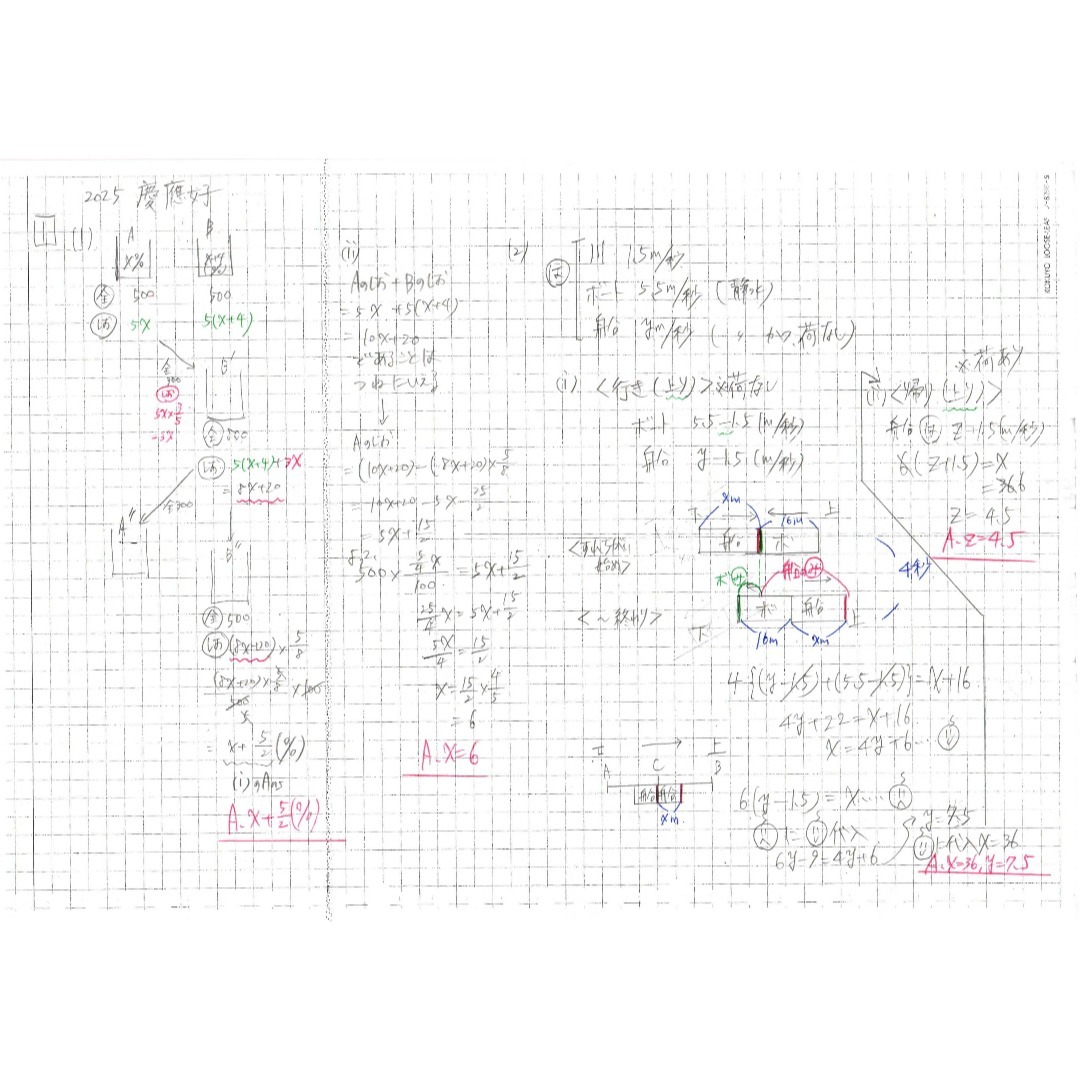 2025 慶應女子
1 (1)
A B
x% x+4(%)
全 500 500
ほ 5x 5(x+4)
全300
ほ
5x×3/5
=3x
B'
全 800
ほ 5(x+4)+3x
=8x+20
全300
A''
B''
全 500
ほ (8x+20)×5/8
(8x+20)×5/8 ×100
500
5
= x+5/2 (%)
(i)のAns
A. x+5/2 (%)
(ii)
Aのほ + Bのほ
=5x+5(x+4)
=10x+20
であることは
つねにいえる
↓
Aのほ
=(10x+20)-(8x+20)×5/8
=10x+20-5x-25/2
=5x+15/2
500× 5/4 x/100 =5x+15/2
25/4 x=5x+15/2
5x/4=15/2
x=15/2×4/5
=6
A. x=6
(2)
川 1.5m/秒
ボート 5.5m/秒 (静水)
船 ym/秒 (〃 かつ 荷なし)
(i) <行き(上り)>※荷なし
ボート 5.5-1.5 (m/秒)
船 y-1.5 (m/秒)
xm
16m
船 ボ
<すれちがい始め>
4秒
<〜終わり>
下
ボ 船
上
16m xm
4{(y-1.5)+(5.5-1.5)}=x+16
4y+22=x+16
x=4y+6…
下 → 上
A C B
船 船
xm
6(y-1.5)=x…
代入
6y-9=4y+6
y=7.5
に代入 x=36
A. x=36, y=7.5
※荷あり
(ii)<帰り
z+1.5(m/秒)
6(z+1.5)=x
=36
z=4.5
A. z=4.5
KOKUYO LOOSE-LEAF